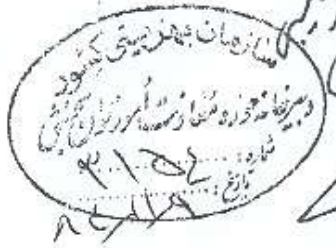 سازمان بهزیستی کشور
دبیرخانه حوزه معاونت امور توانبخشی
شماره: ۳۱۵۰۴
تاریخ: ۸۴/۸/۹